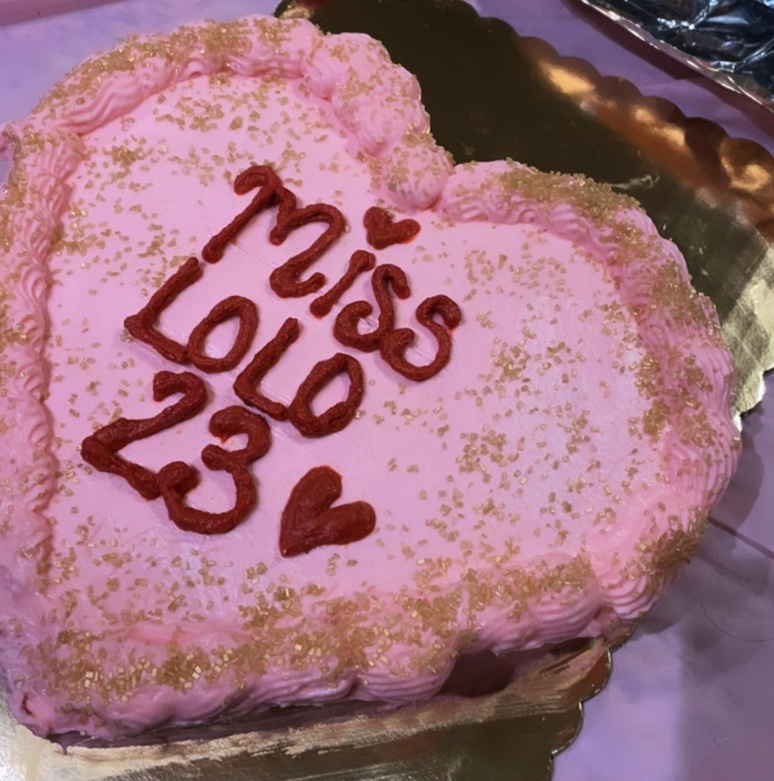 MISS
LOLO
23